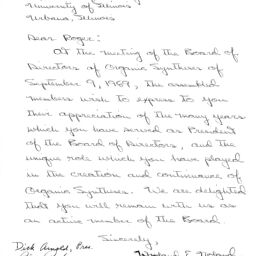 University of Illinois
Urbana, Illinois
Dear Roger:
At the meeting of the Board of
Directors of Organic Syntheses of
September 9, 1959, the assembled
members wish to express to you
their appreciation of the many years
which you have served as President
of the Board of Directors, and the
unique role which you have played
in the creation and continuance of
Organic Syntheses. We are delighted
that you will remain with us as
an active member of the Board.
Sincerely,
Dick Arnold, Pres.